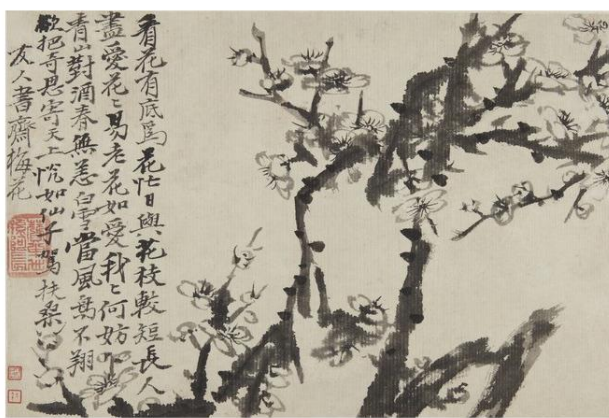 看花有底為花忙日與花枝較短長人
盡愛花〻易老花如愛我〻何妨
青山對酒春無恙白雪當風鳥不翔
欲把奇思寄天上恍如仙子駕扶桑
友人書齋梅花